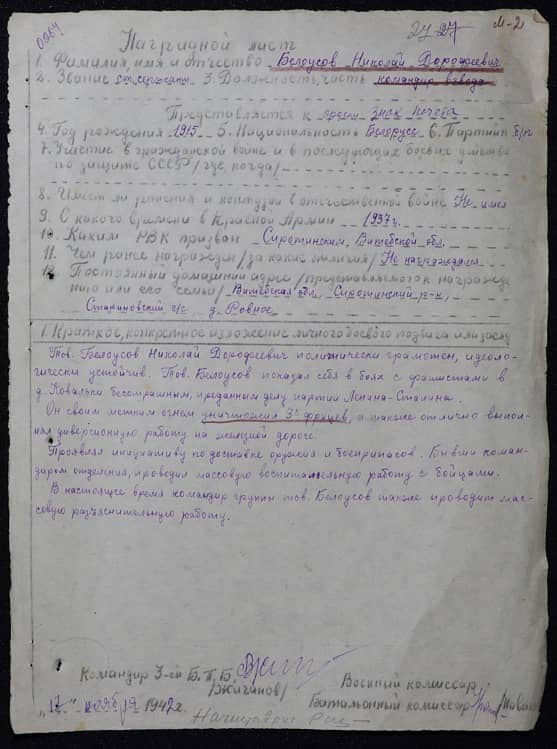 0264
27 27
М-2
Наградной лист
1. Фамилия, имя и отчество Белоусов Николай Дорофеевич
2. Звание ст. сержант 3. Должность, часть командир взвода
Представляется к ордену Знак почета
4. Год рождения 1915 5. Национальность Белорусс 6. Партийн б/п
7. Участие в гражданской войне и в последующих боевых действ.
по защите СССР /где, когда/
8. Имеет ли ранения и контузии в отечественной войне Не имел
9. С какого времени в Красной Армии 1937г.
10. Каким РВК призван Сиротинским, Витебской обл.
11. Чем ранее награжден /за какие отличия/ Не награждался
12. Постоянный домашний адрес /представляемого к награжде
нию или его семьи/ Витебская обл, Сиротинский р-н,
с/с д. Ровное
1. Краткое, конкретное изложение личного боевого подвига или заслуг
Тов. Белоусов Николай Дорофеевич политически грамотен, идеоло-
гически устойчив. Тов. Белоусов показал себя в боях с фашистами в
д. Ковальки бесстрашным, преданным делу партии Ленина-Сталина.
Он своим метким огнем уничтожил 3х фрицев, а также отлично выпол-
нял диверсионную работу на железной дороге.
Проявлял инициативу по доставке оружия и боеприпасов. Бывши коман-
диром отделения, проводил массовую воспитательную работу с бойцами.
В настоящее время командир группы тов. Белоусов также проводит мас-
совую разъяснительную работу.
Командир 3-ей Б.П.Б.
/Жиганов/
Военный комиссар
Батальонный комиссар
"17" ноября 1942г.